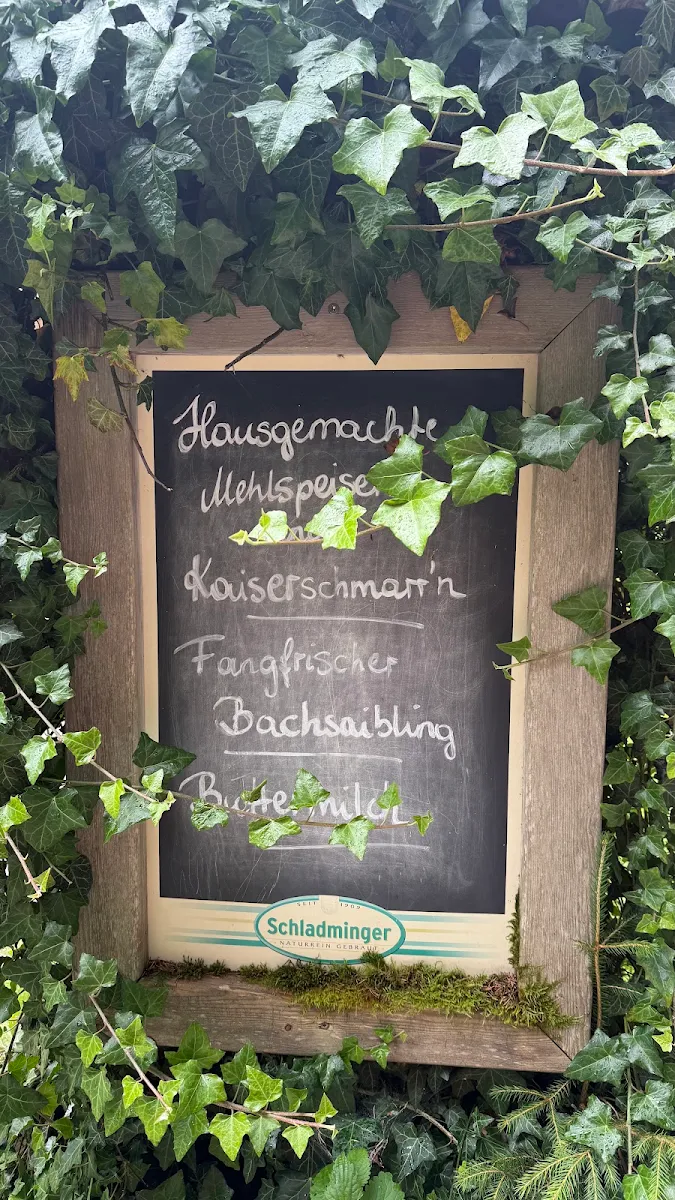 Hausgemachte
Mehlspeisen
Kaiserschmarr'n
Fangfrischer
Bachsaibling
Buttermilch
SEIT 1909
Schladminger
NATURREIN GEBRAUT